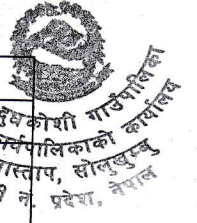 दुधकोशी गाउँपालिका
कार्यपालिकाको कार्यालय
सोलुखुम्बु
प्रदेश, नेपाल